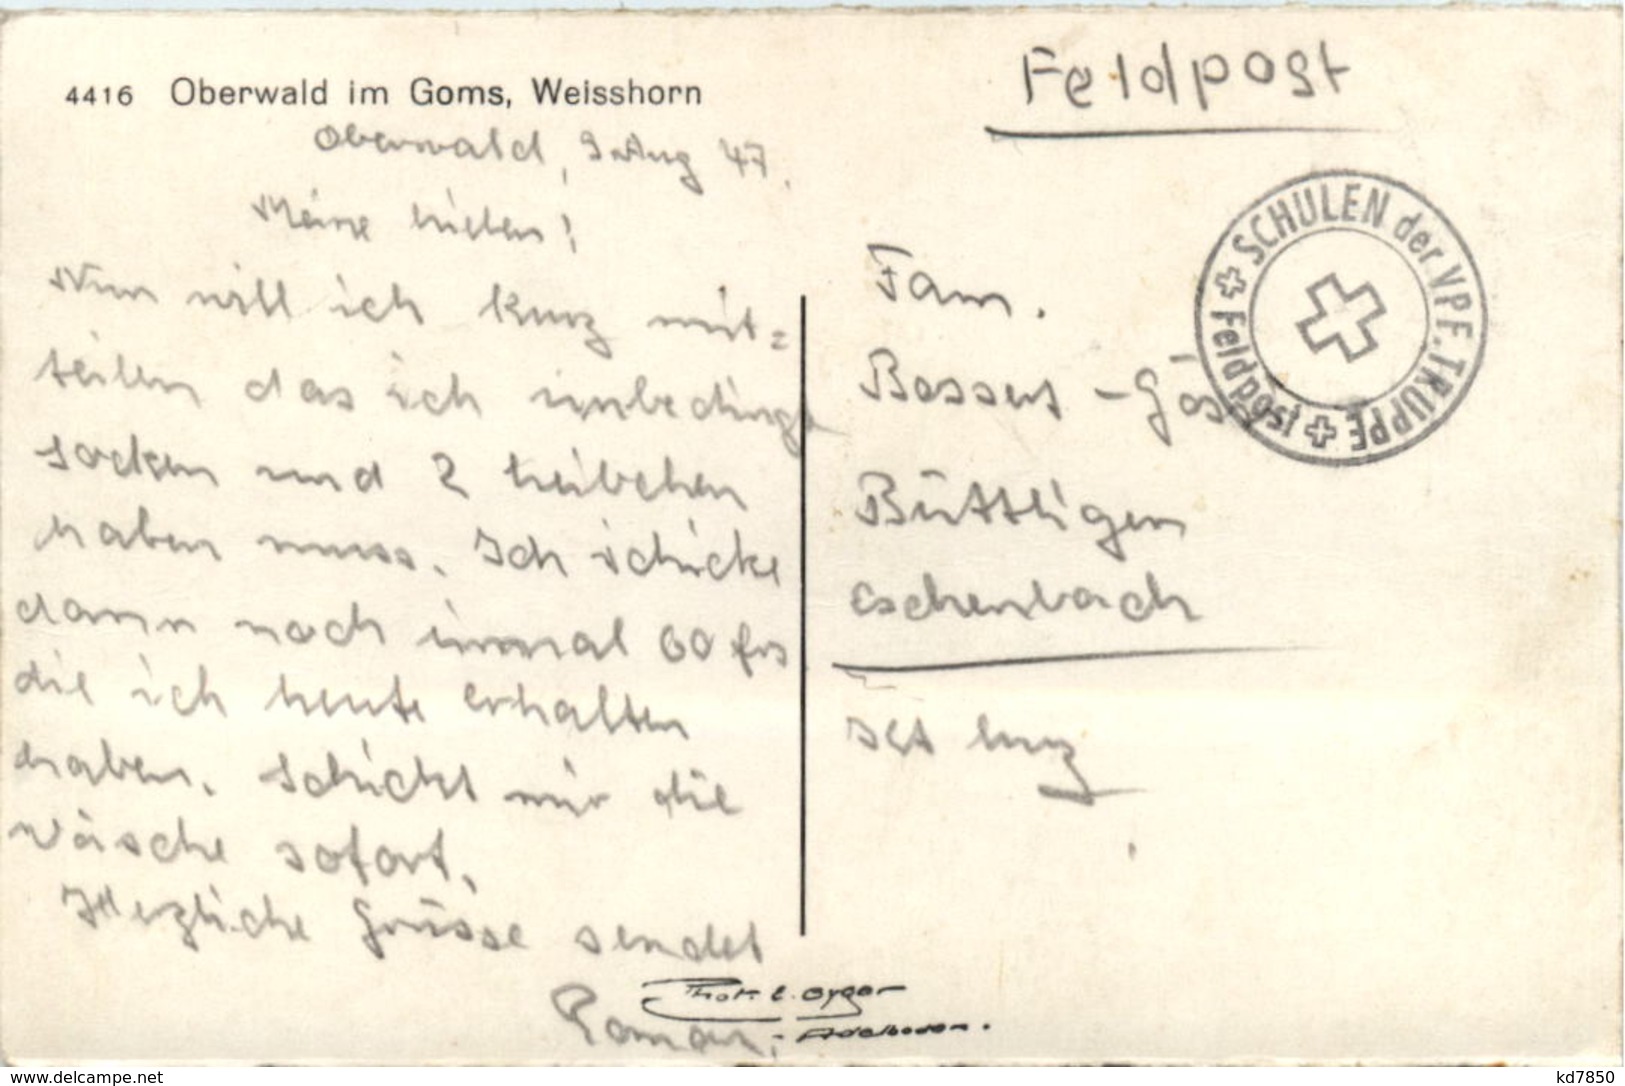 4416 Oberwald im Goms, Weisshorn
Oberwald, 9. Aug 47.
Meine Lieben!
Nun will ich kurz mit=
teilen das ich unbedingt
Socken und 2 Leibchen
haben muss. Ich schicke
dann noch inmal 60 frs
die ich heute erhalten
haben. Schickt mir die
Wäsche sofort.
Herzliche Grüsse sendet
Roman.
Feldpost
SCHULEN der VPF. TRUPPE
Feldpost
Fam.
Bossert -
Büttligen
Eschenbach
Luz
Phot. E. Gyger
Adelboden.
www.delcampe.net
kd7850